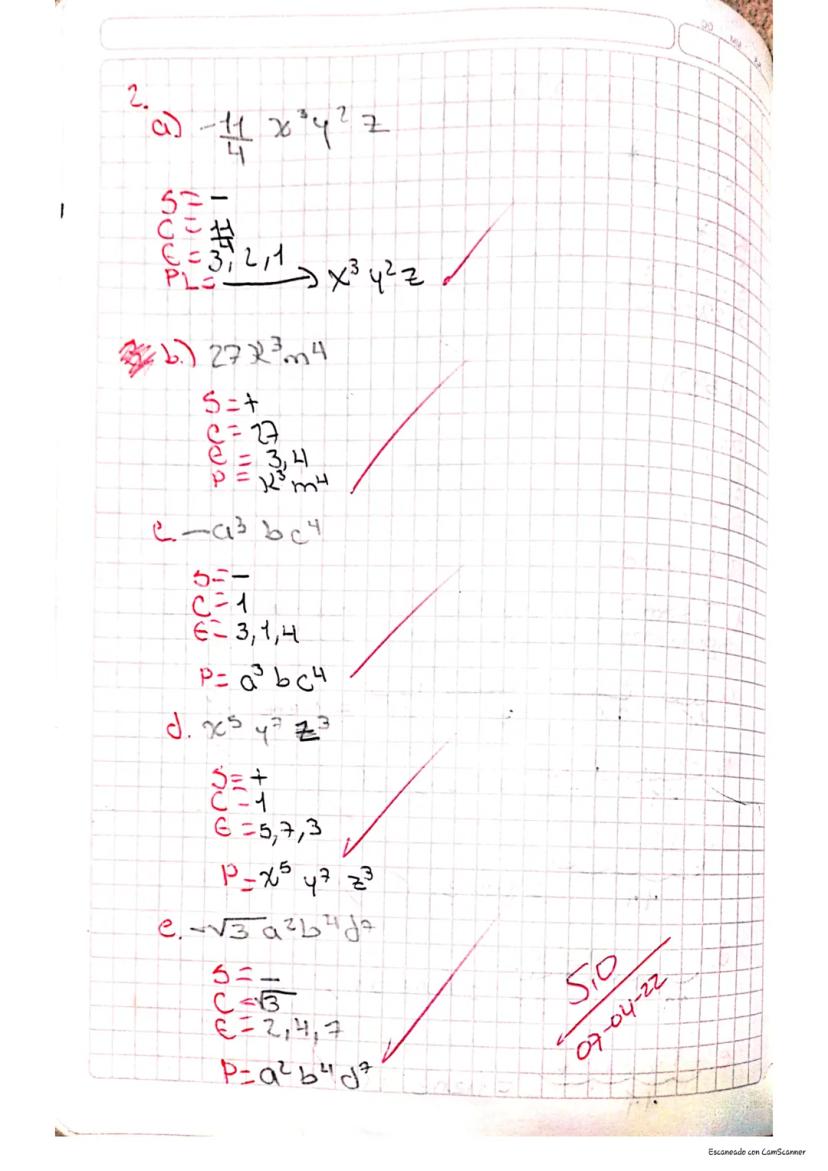 2.
a) -11/4 x³y² z
S= −
C= 11/4
E= 3, 2, 1
PL= ⟶ x³ y² z
b.) 27 k³m⁴
S=+
C= 27
e = 3,4
P = k³ m⁴
c. −a³ bc⁴
S=−
C=1
E= 3,1,4
P= a³ bc⁴
d. x⁵ y⁷ z³
S=+
C=1
E =5,7,3
P=x⁵ y⁷ z³
e. -√3 a²b⁴d⁷
S= −
C=√3
E= 2,4,7
P=a² b⁴ d⁷
5,0
07-04-22
Escaneado con CamScanner